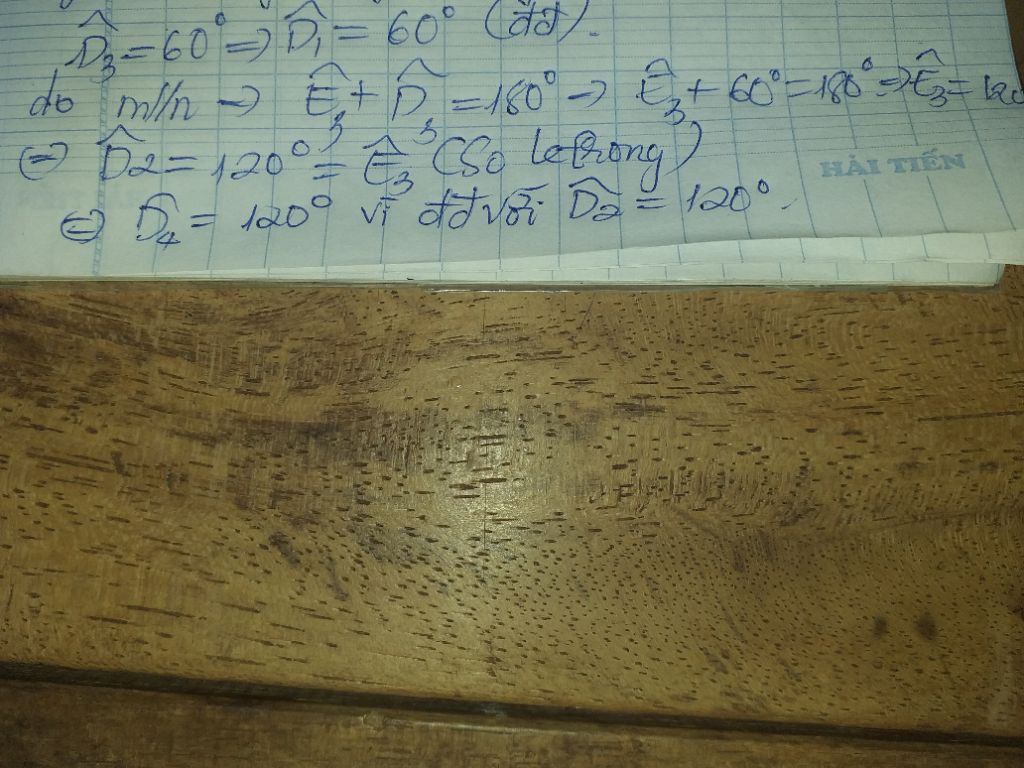 D̂₃ = 60° => D̂₁ = 60° (đđ).
do m//n → Ê₃ + D̂₃ = 180° → Ê₃ + 60° = 180° => Ê₃ = 120
(=) D̂2 = 120° = Ê₃ (So le trong)
HẢI TIẾN
(=) D̂₄ = 120° vì đđ với D̂2 = 120°.